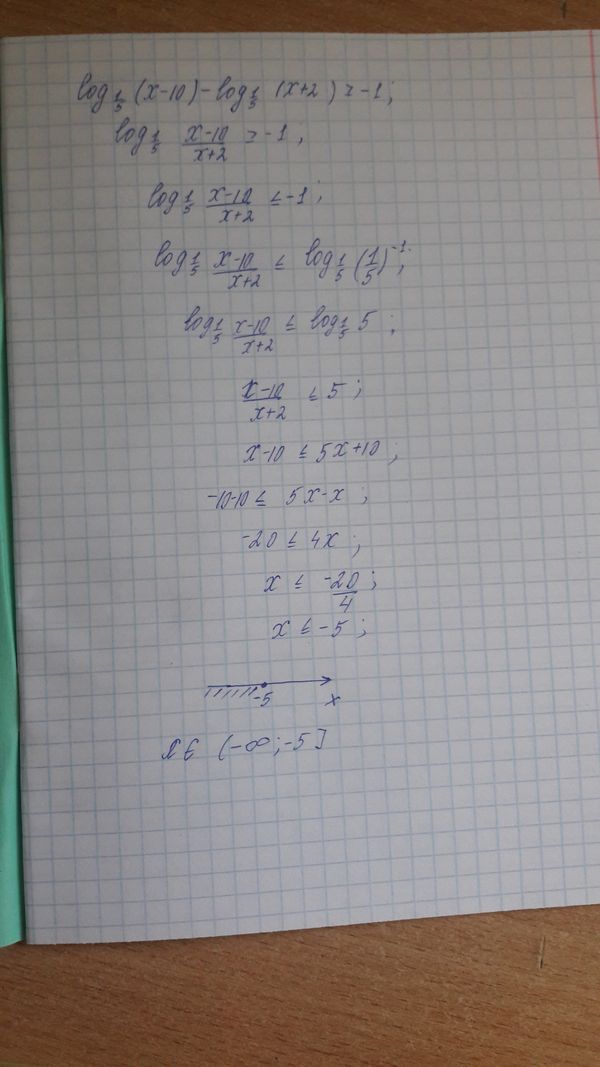 log_{1/5} (x-10) - log_{1/5} (x+2) ≥ -1;
log_{1/5} \frac{x-10}{x+2} ≥ -1;
log_{1/5} \frac{x-10}{x+2} ≤ -1;
log_{1/5} \frac{x-10}{x+2} ≤ log_{1/5} (\frac{1}{5})^{-1};
log_{1/5} \frac{x-10}{x+2} ≤ log_{1/5} 5;
\frac{x-10}{x+2} ≤ 5;
x-10 ≤ 5x+10;
-10-10 ≤ 5x-x;
-20 ≤ 4x;
x ≤ \frac{-20}{4};
x ≤ -5;
-5 x
x ∈ (-∞; -5]